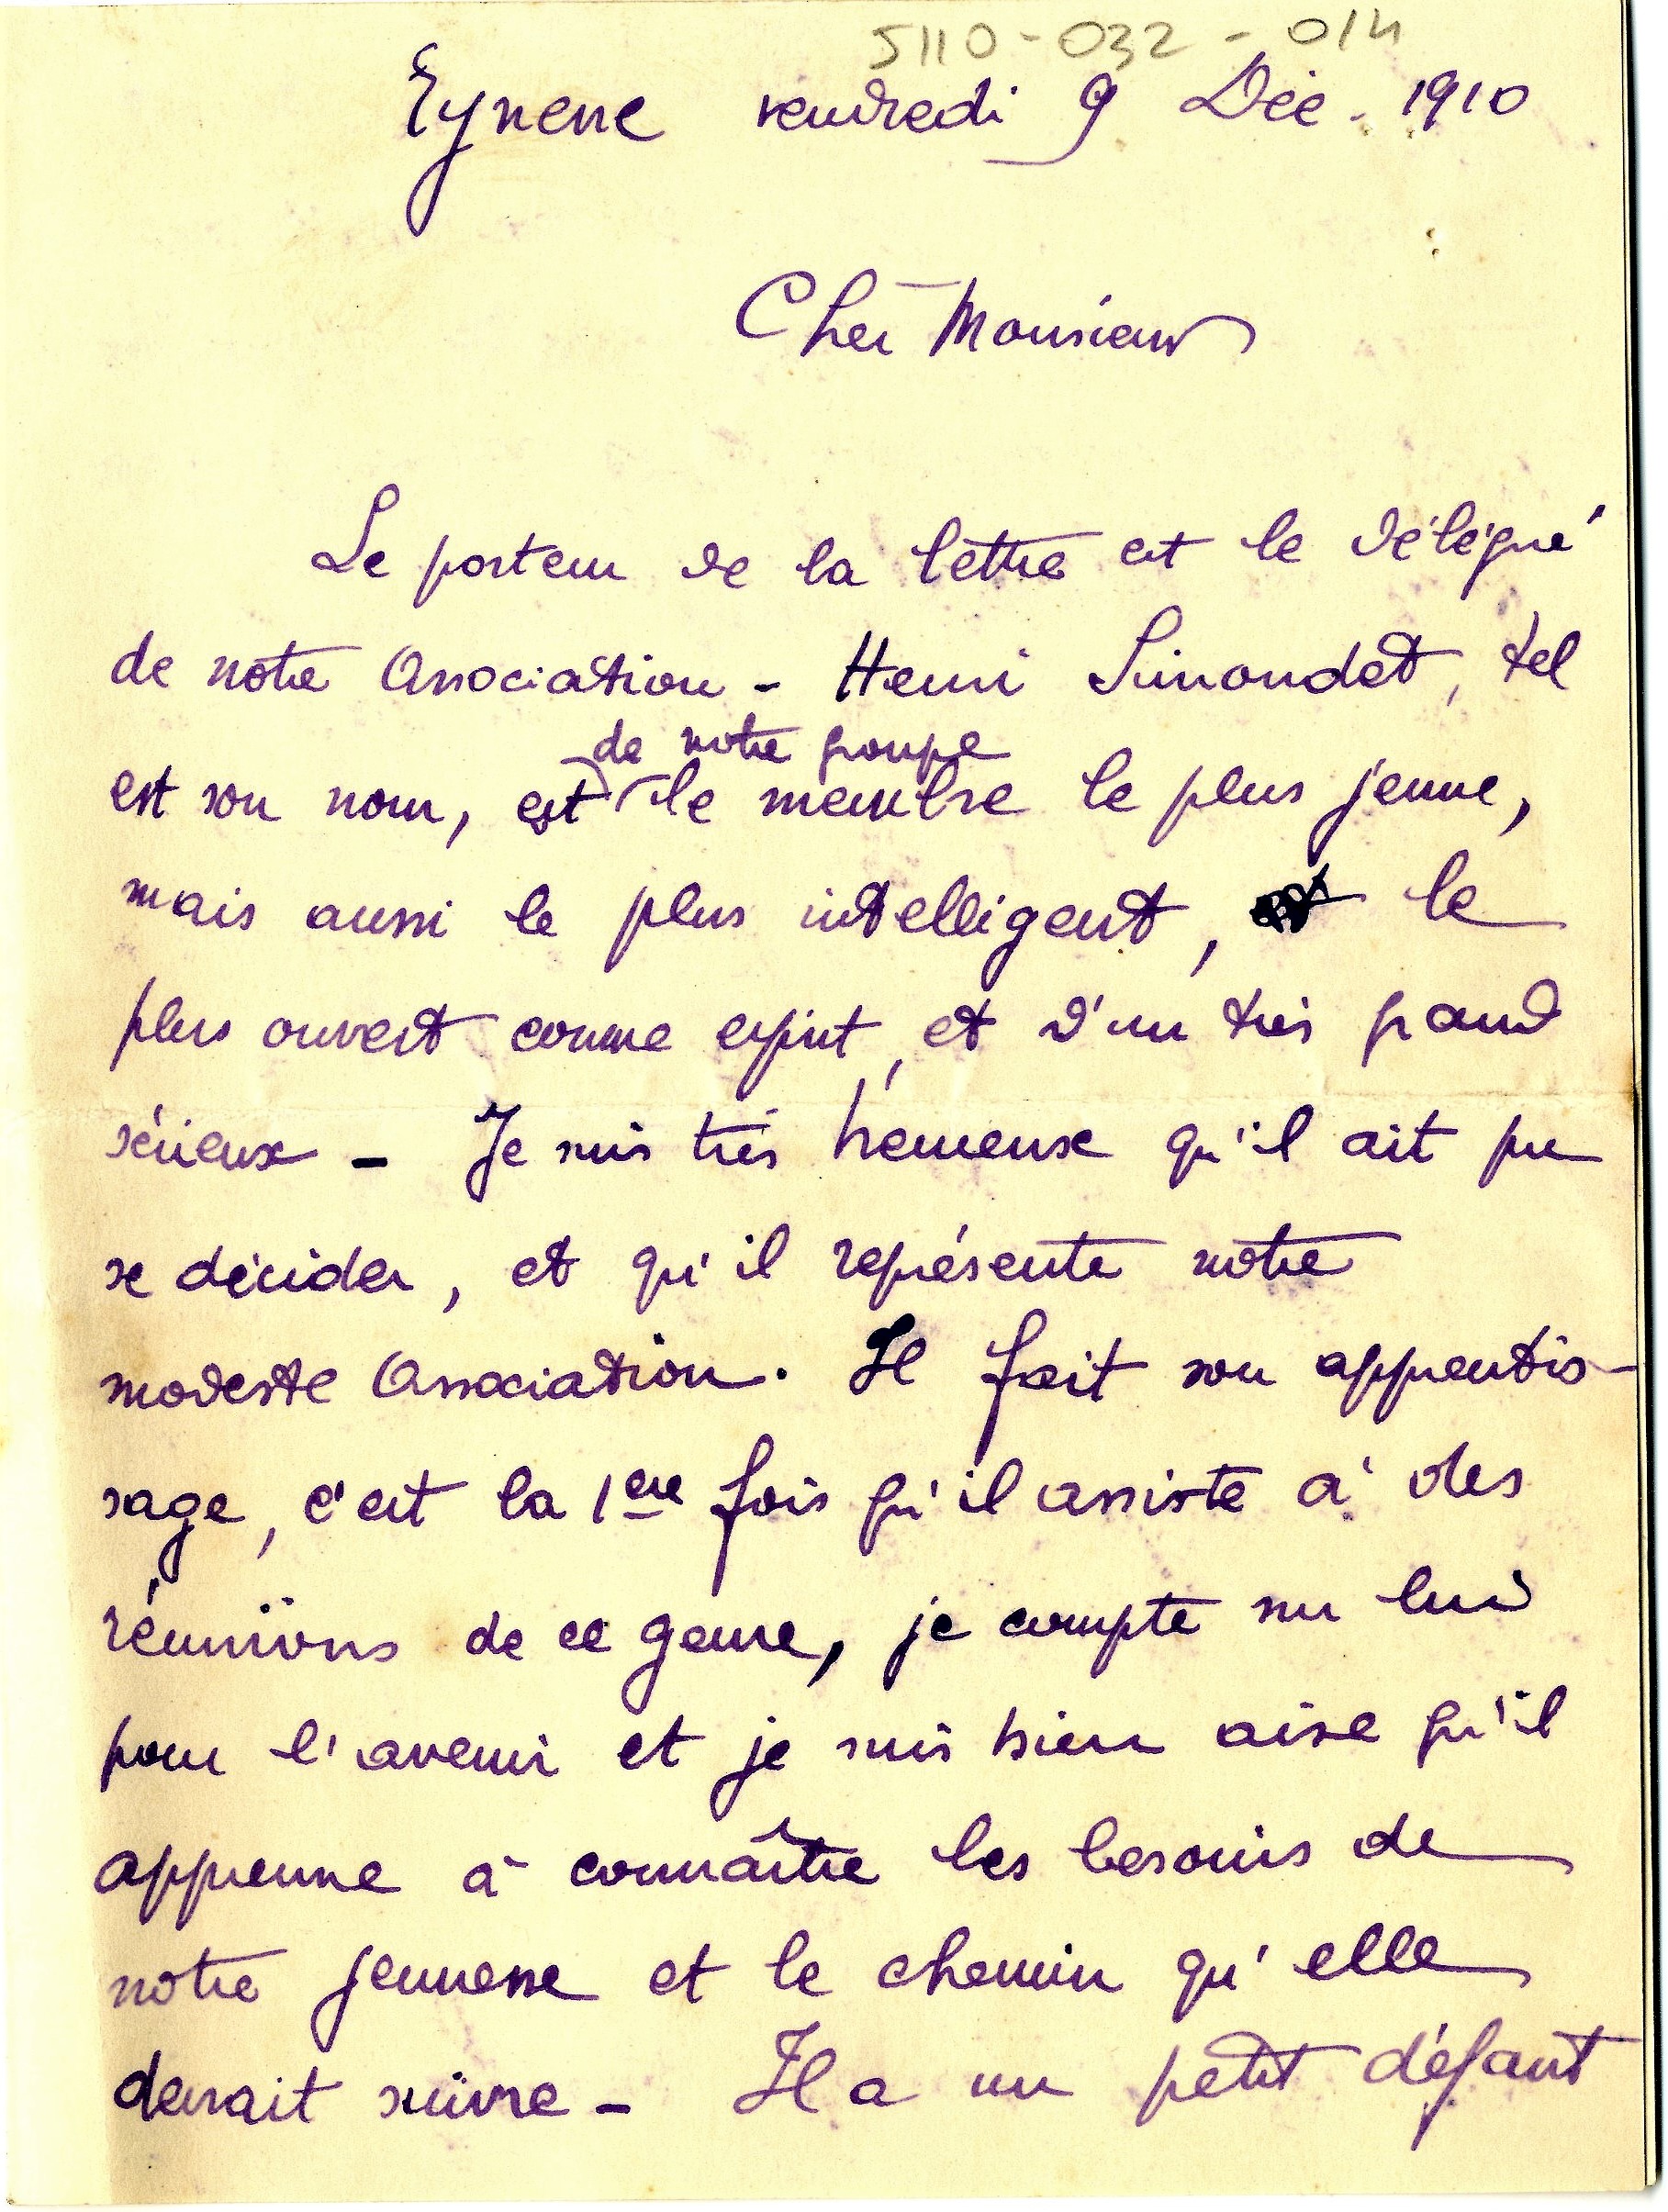 5110-032-014
Eynesse vendredi 9 Déc. 1910
Cher Monsieur
Le porteur de la lettre est le délégué
de notre Association - Henri Simondet, tel
de notre groupe
est son nom, est le membre le plus jeune,
mais aussi le plus intelligent, le
plus ouvert comme esprit, et d'un très grand
sérieux - Je suis très heureux qu'il ait pu
se décider, et qu'il représente notre
modeste Association. Il fait son apprentis-
sage, c'est la 1ere fois qu'il assiste à des
réunions de ce genre, je compte sur lui
pour l'avenir et je suis bien aise qu'il
apprenne à connaître les besoins de
notre jeunesse et le chemin qu'elle
devrait suivre - Il a un petit défaut